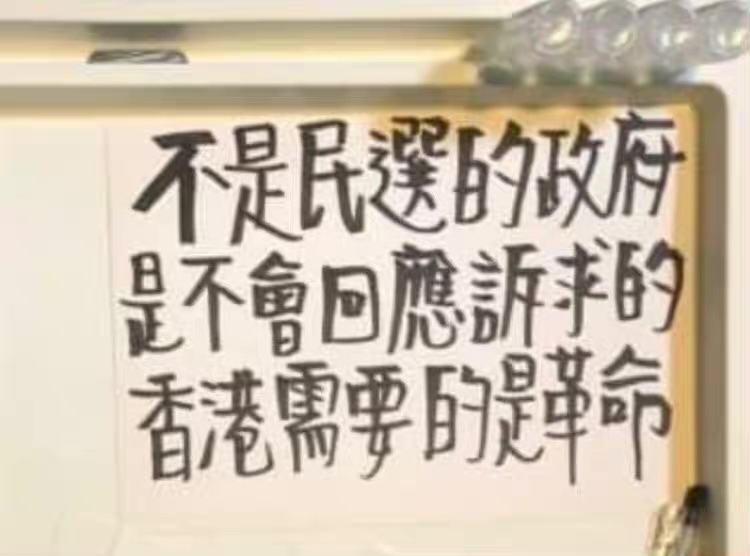 不是民選的政府
是不會回應訴求的
香港需要的是革命